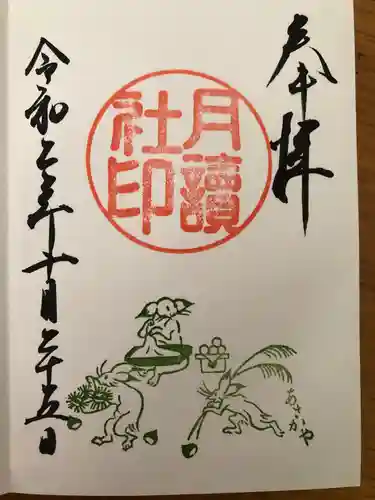 奉拝
月讀
社印
令和二年十月二十五日
あさかや